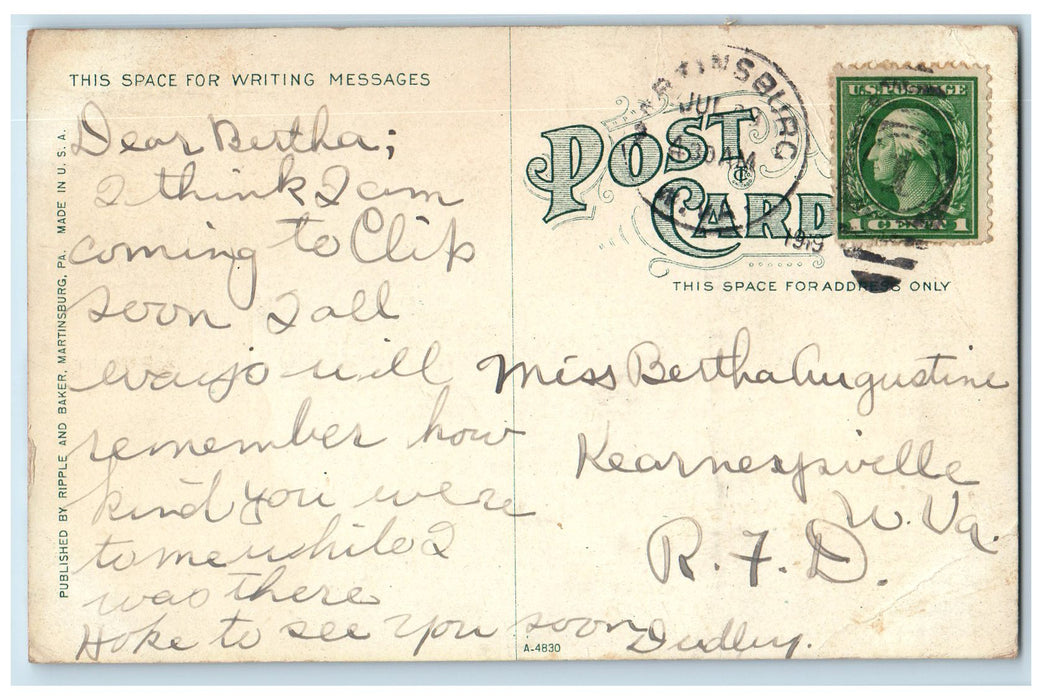 THIS SPACE FOR WRITING MESSAGES
Dear Bertha;
I think I am
coming to Clip
soon I all
ways will
remember how
kind you were
to me while I
was there
Hoke to see you soon
Dudley.
PUBLISHED BY RIPPLE AND BAKER, MARTINSBURG, PA. MADE IN U. S. A.
A-4830
POST CARD
MARTINSBURG
JUL
30 AM
W. VA.
1919
U.S. POSTAGE
1 CENT 1
THIS SPACE FOR ADDRESS ONLY
Miss Bertha Augustine
Kearneysville
W. Va.
R. F. D.